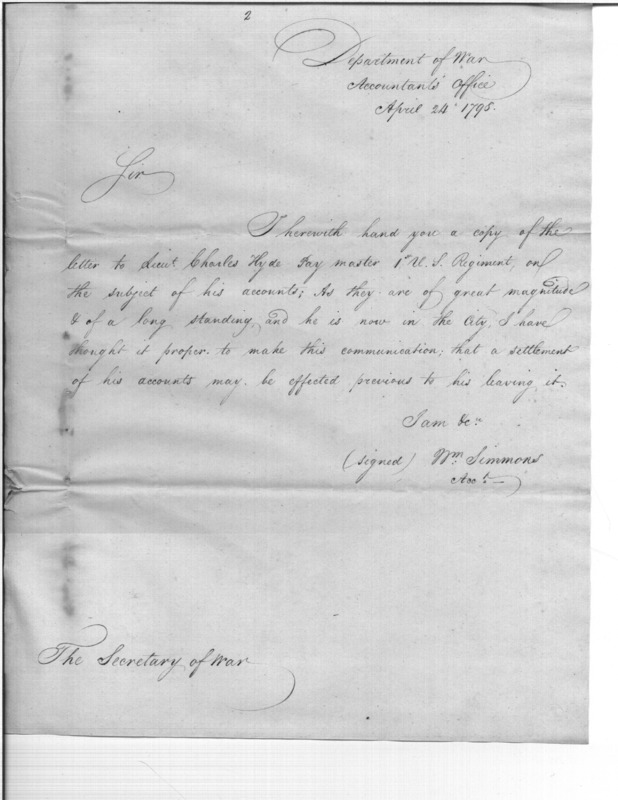 2
Department of War
Accountants Office
April 24th 1798.
Sir
I herewith hand you a copy of the
letter to Lieut. Charles Hyde Pay master 1st U. S. Regiment, on
the subject of his accounts; As they are of great magnitude
& of a long standing, and he is now in the City, I have
thought it proper to make this communication; that a settlement
of his accounts may be effected previous to his leaving it.
I am &c.
(signed) Wm. Simmons
Acct.
The Secretary of War